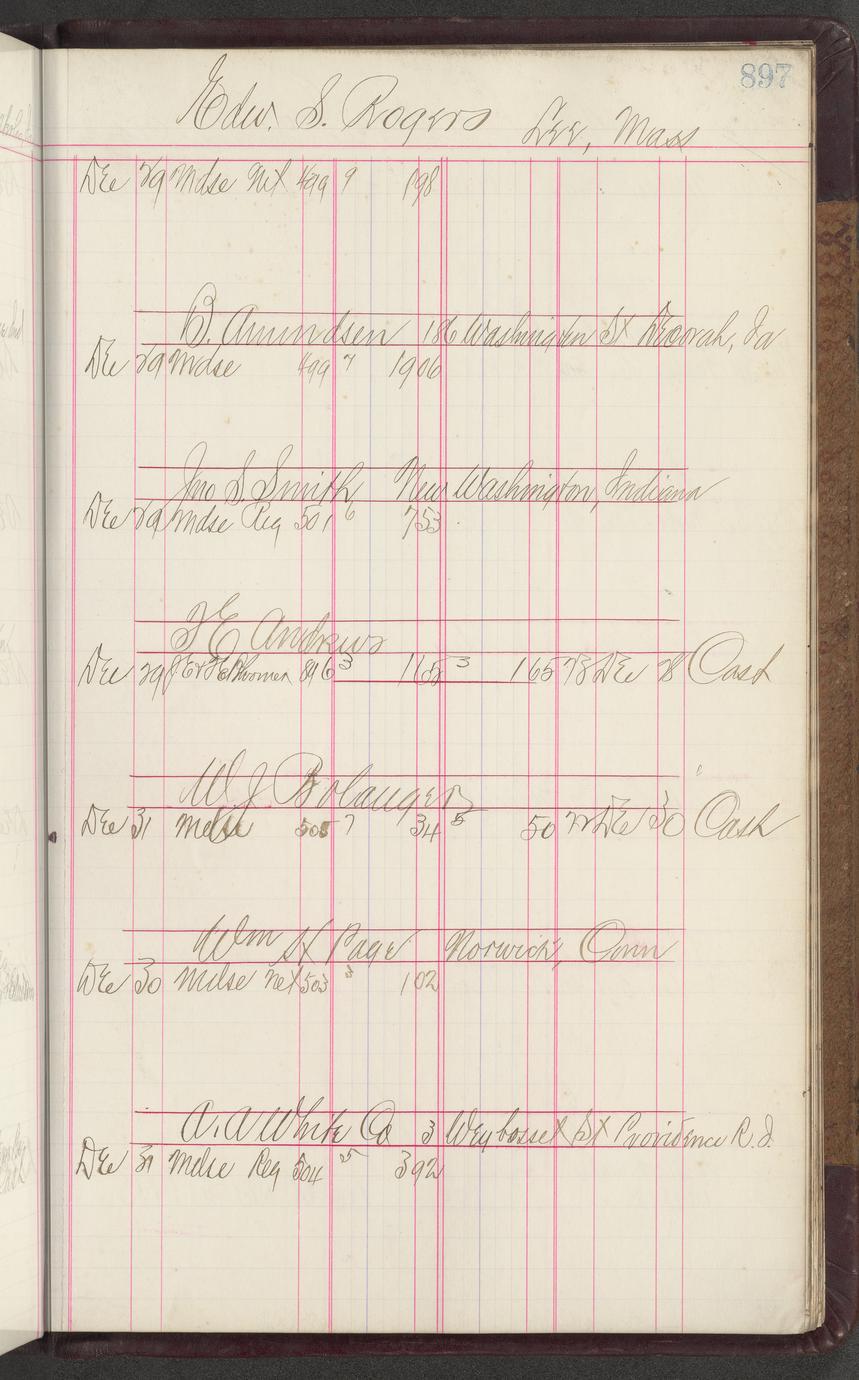 897
Edw. S. Rogers Lee, Mass
Dec 29 Mdse Net 499 9 198
B. Amundsen 186 Washington St Decorah, Ia
Dec 29 Mdse 499 7 1906
Jno S. Smith New Washington, Indiana
Dec 29 Mdse Reg 501 6 753
J E Andrews
Dec 29 896 3 165 3 165 Dec 28 Cash
W J Bolanger
Dec 31 Mdse 505 7 34 5 50 Dec 30 Cash
Wm H Page Norwich, Conn
Dec 30 Mdse Net 503 3 102
A. A White Co 3 Weybosset St Providence R.I.
Dec 31 Mdse Reg 504 25 392